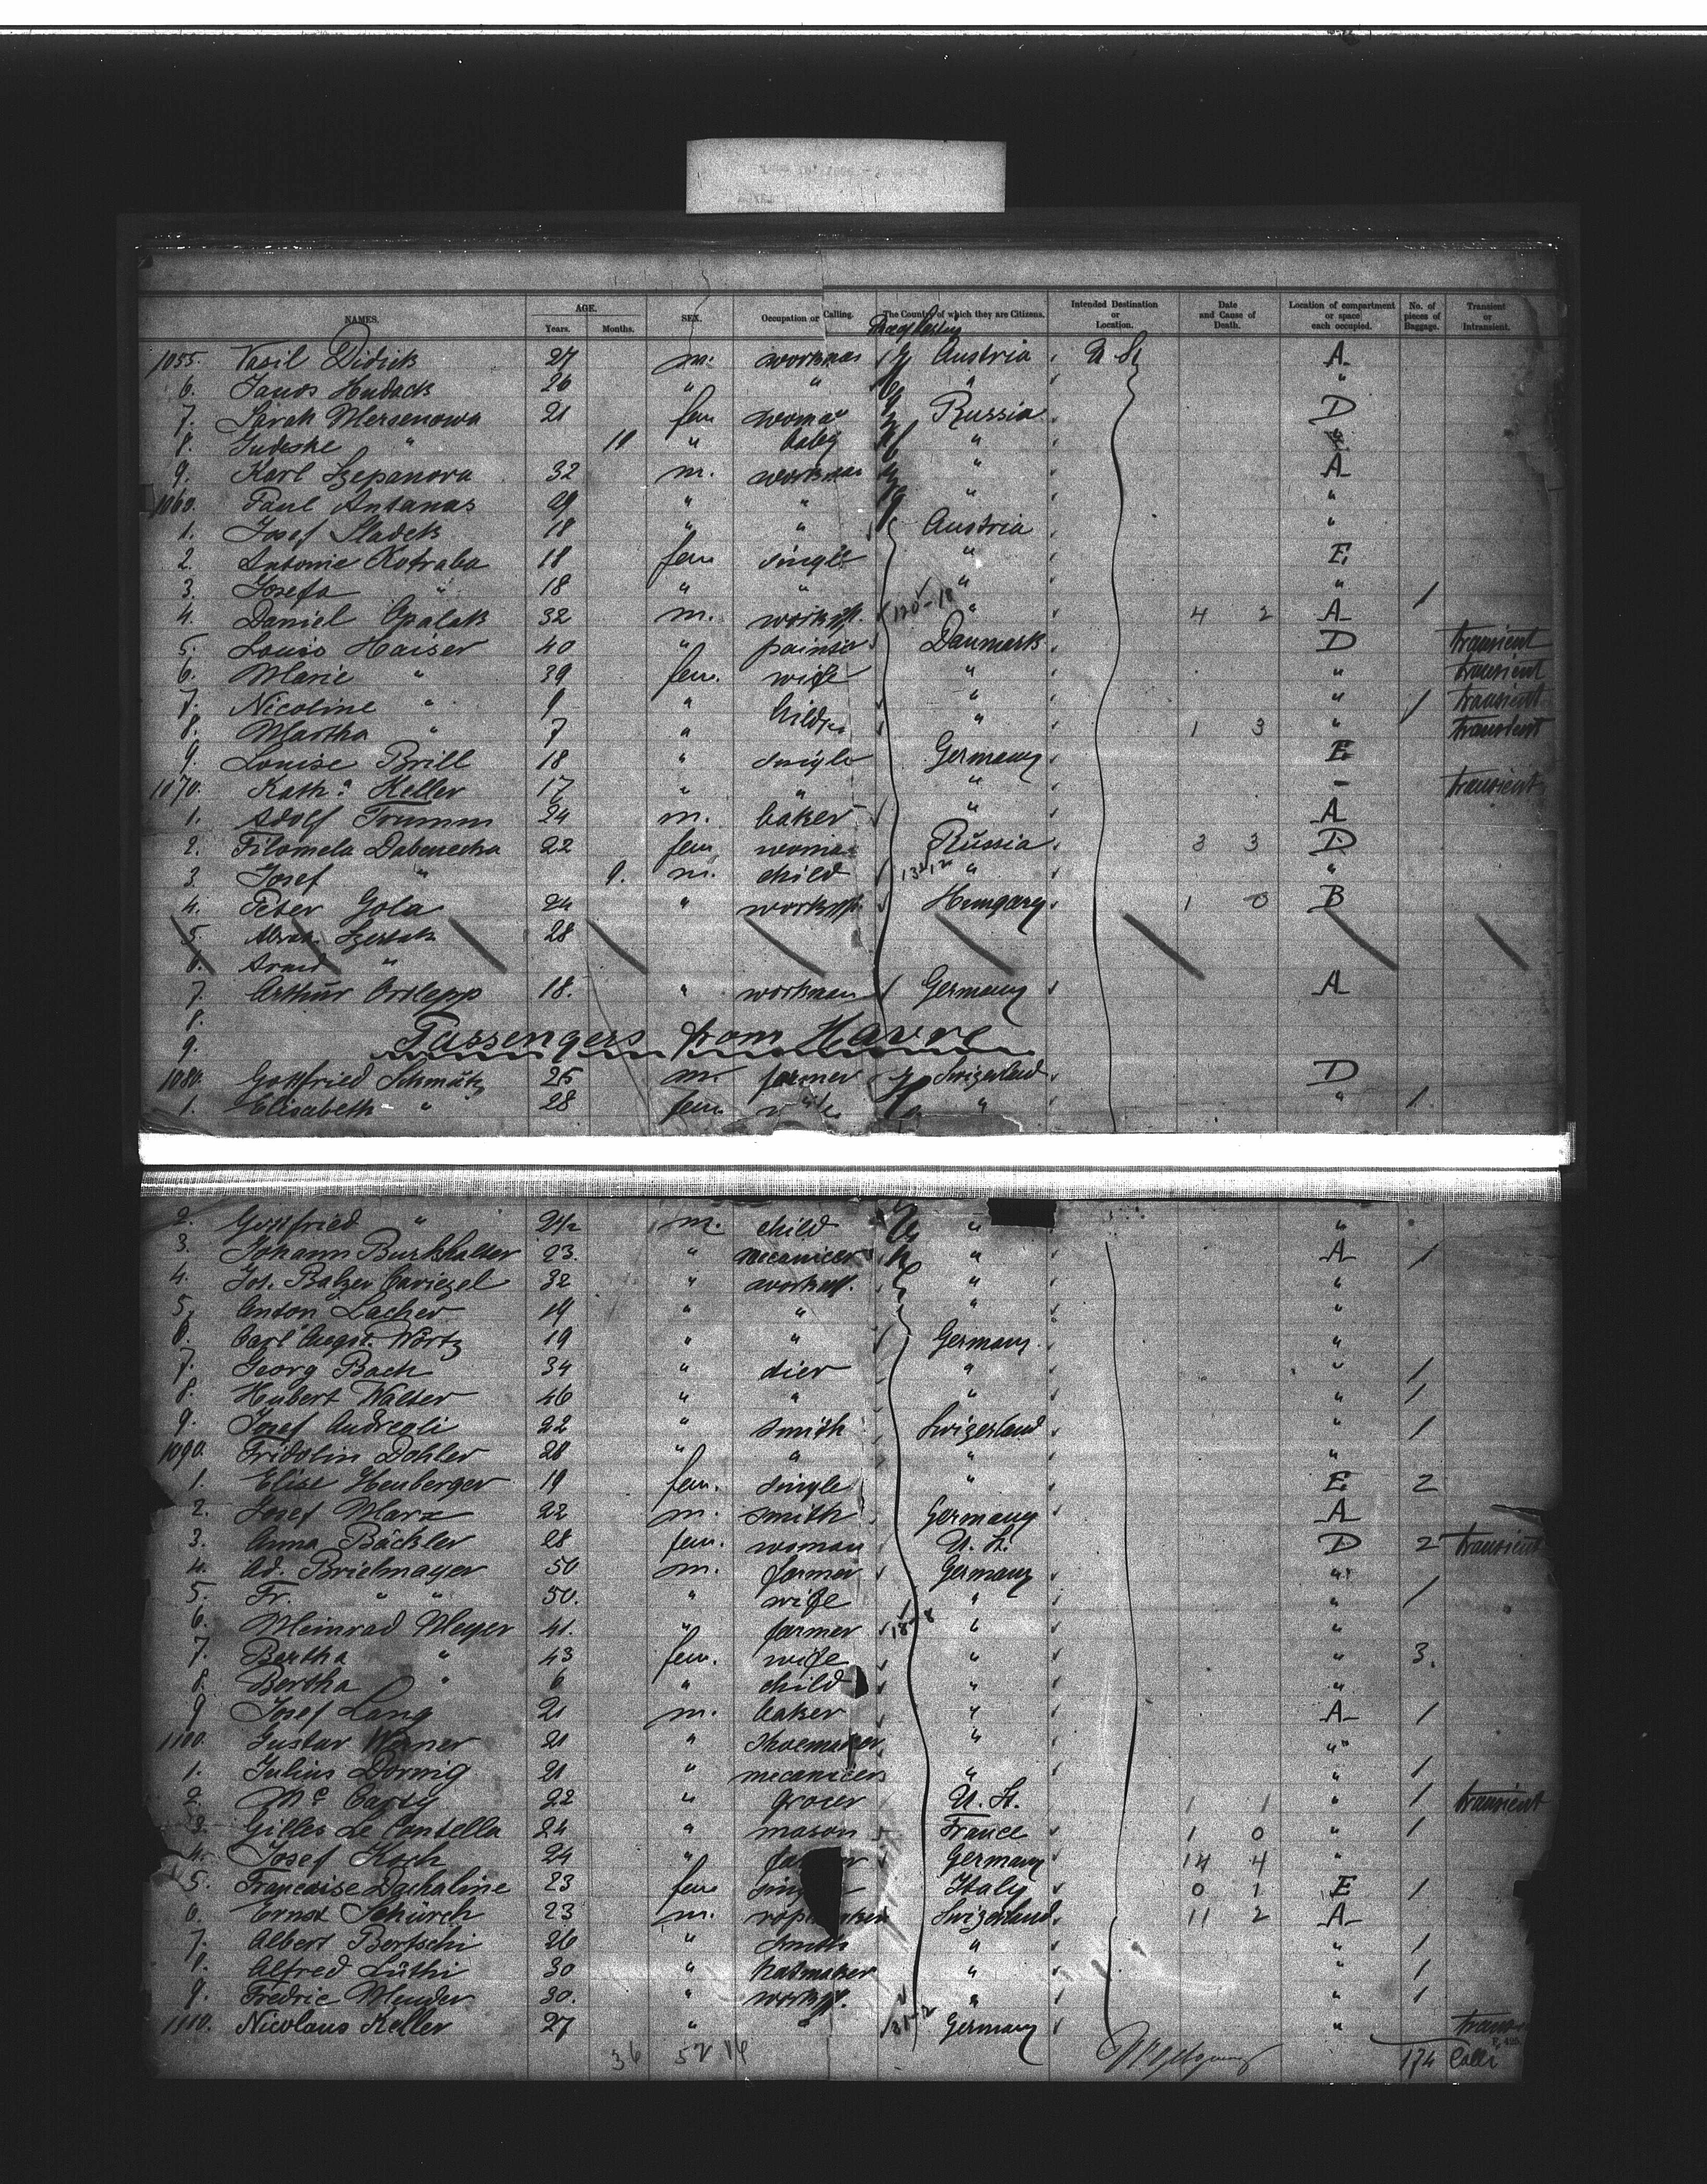 NAMES. AGE. Years. Months. SEX. Occupation or Calling. The Country of which they are Citizens. Intended Destination or Location. Date and Cause of Death. Location of compartment or space each occupied. No. of pieces of Baggage. Transient or Intransient.
1055. Vasil Didick 27 m. workman Austria U. St. A
6. Janos Hudack 26 " " " "
7. Sarah Mersenowa 21 fem woman Russia D
8. " " baby "
9. Karl Szepanova 32 m. workman " A
1060. Paul Antanas 29 " " " "
1. Josef Sladek 18 " " Austria "
2. Antonie Kotraba 18 fem single " E
3. Josefa " 18 " " " " 1
4. Daniel Opalak 32 m. workm. " 4 2 A
5. Louis Haiser 40 " painter Danmark D transient
6. Marie " 39 fem. wife " " transient
7. Nicoline " 9 " " " 1 transient
8. Martha " 7 " " 1 3 " transient
9. Louise Brill 18 " single Germany E
1070. Kath.a Keller 17 " " " transient
1. Adolf Trumm 24 m. baker " A
2. Filomela Dabenecka 22 fem woman Russia 3 3 D
3. Josef " 9. m. child " "
4. Peter Gola 24 " workm Hungary 1 0 B
5. 28
6. "
7. Arthur Orslepp 18. " workman Germany A
8.
Passengers from Havre
9.
1080. Gottfried Schmutz 25 m. farmer Swizerland D
1. Elisabeth " 28 fem. " " 1
2. Gottfried " 2½ m. child " "
3. Johann Burkhalter 23 " mecanicer " A 1
4. Jos. Balzer Cariezel 32 " workm. " "
5. Anton Lacher 19 " " " "
6. Carl August Wörtz 19 " " Germany "
7. Georg Bach 34 " dier " " 1
8. Hubert Walter 46 " " " " 1
9. Josef Andregli 22 " smith Swizerland " 1
1090. Fridolin Dohler 28 " " " "
1. Elise Heuberger 19 fem. single " E 2
2. Josef Marx 22 m. smith Germany A
3. Anna Bächler 28 fem. woman U. St. D 2 transient
4. Ad. Brielmayer 50 m. farmer Germany "
5. Fr. " 50. " wife " " 1
6. Meinrad Meyer 41. " farmer " "
7. Bertha " 43 fem. wife " " 3.
8. Bertha " 6 " child " "
9. Josef Lang 21 m. baker " A 1
1100. Gustav Werner 21 " shoemaker " "
1. Julius Döring 21 " mecanicer " " 1
2. Mc Carty 22 " grocer U. St. 1 1 " 1 transient
3. Gilles Le Contella 24 " mason France 1 0 " 1
4. Josef Koch 24 " Germany 14 4 "
5. Francaise Dachaline 23 fem Italy 0 1 E 1
6. Ernst Schürch 23 m. Swizerland 11 2 A
7. Albert Bertschi 26 " smith " " 1
8. Alfred Lüthi 30 " hatmaker " " 1
9. Fredric Meuder 30. " workm. " " 1
1110. Nicolaus Keller 27 " " Germany "
36 52 14 174 Colli